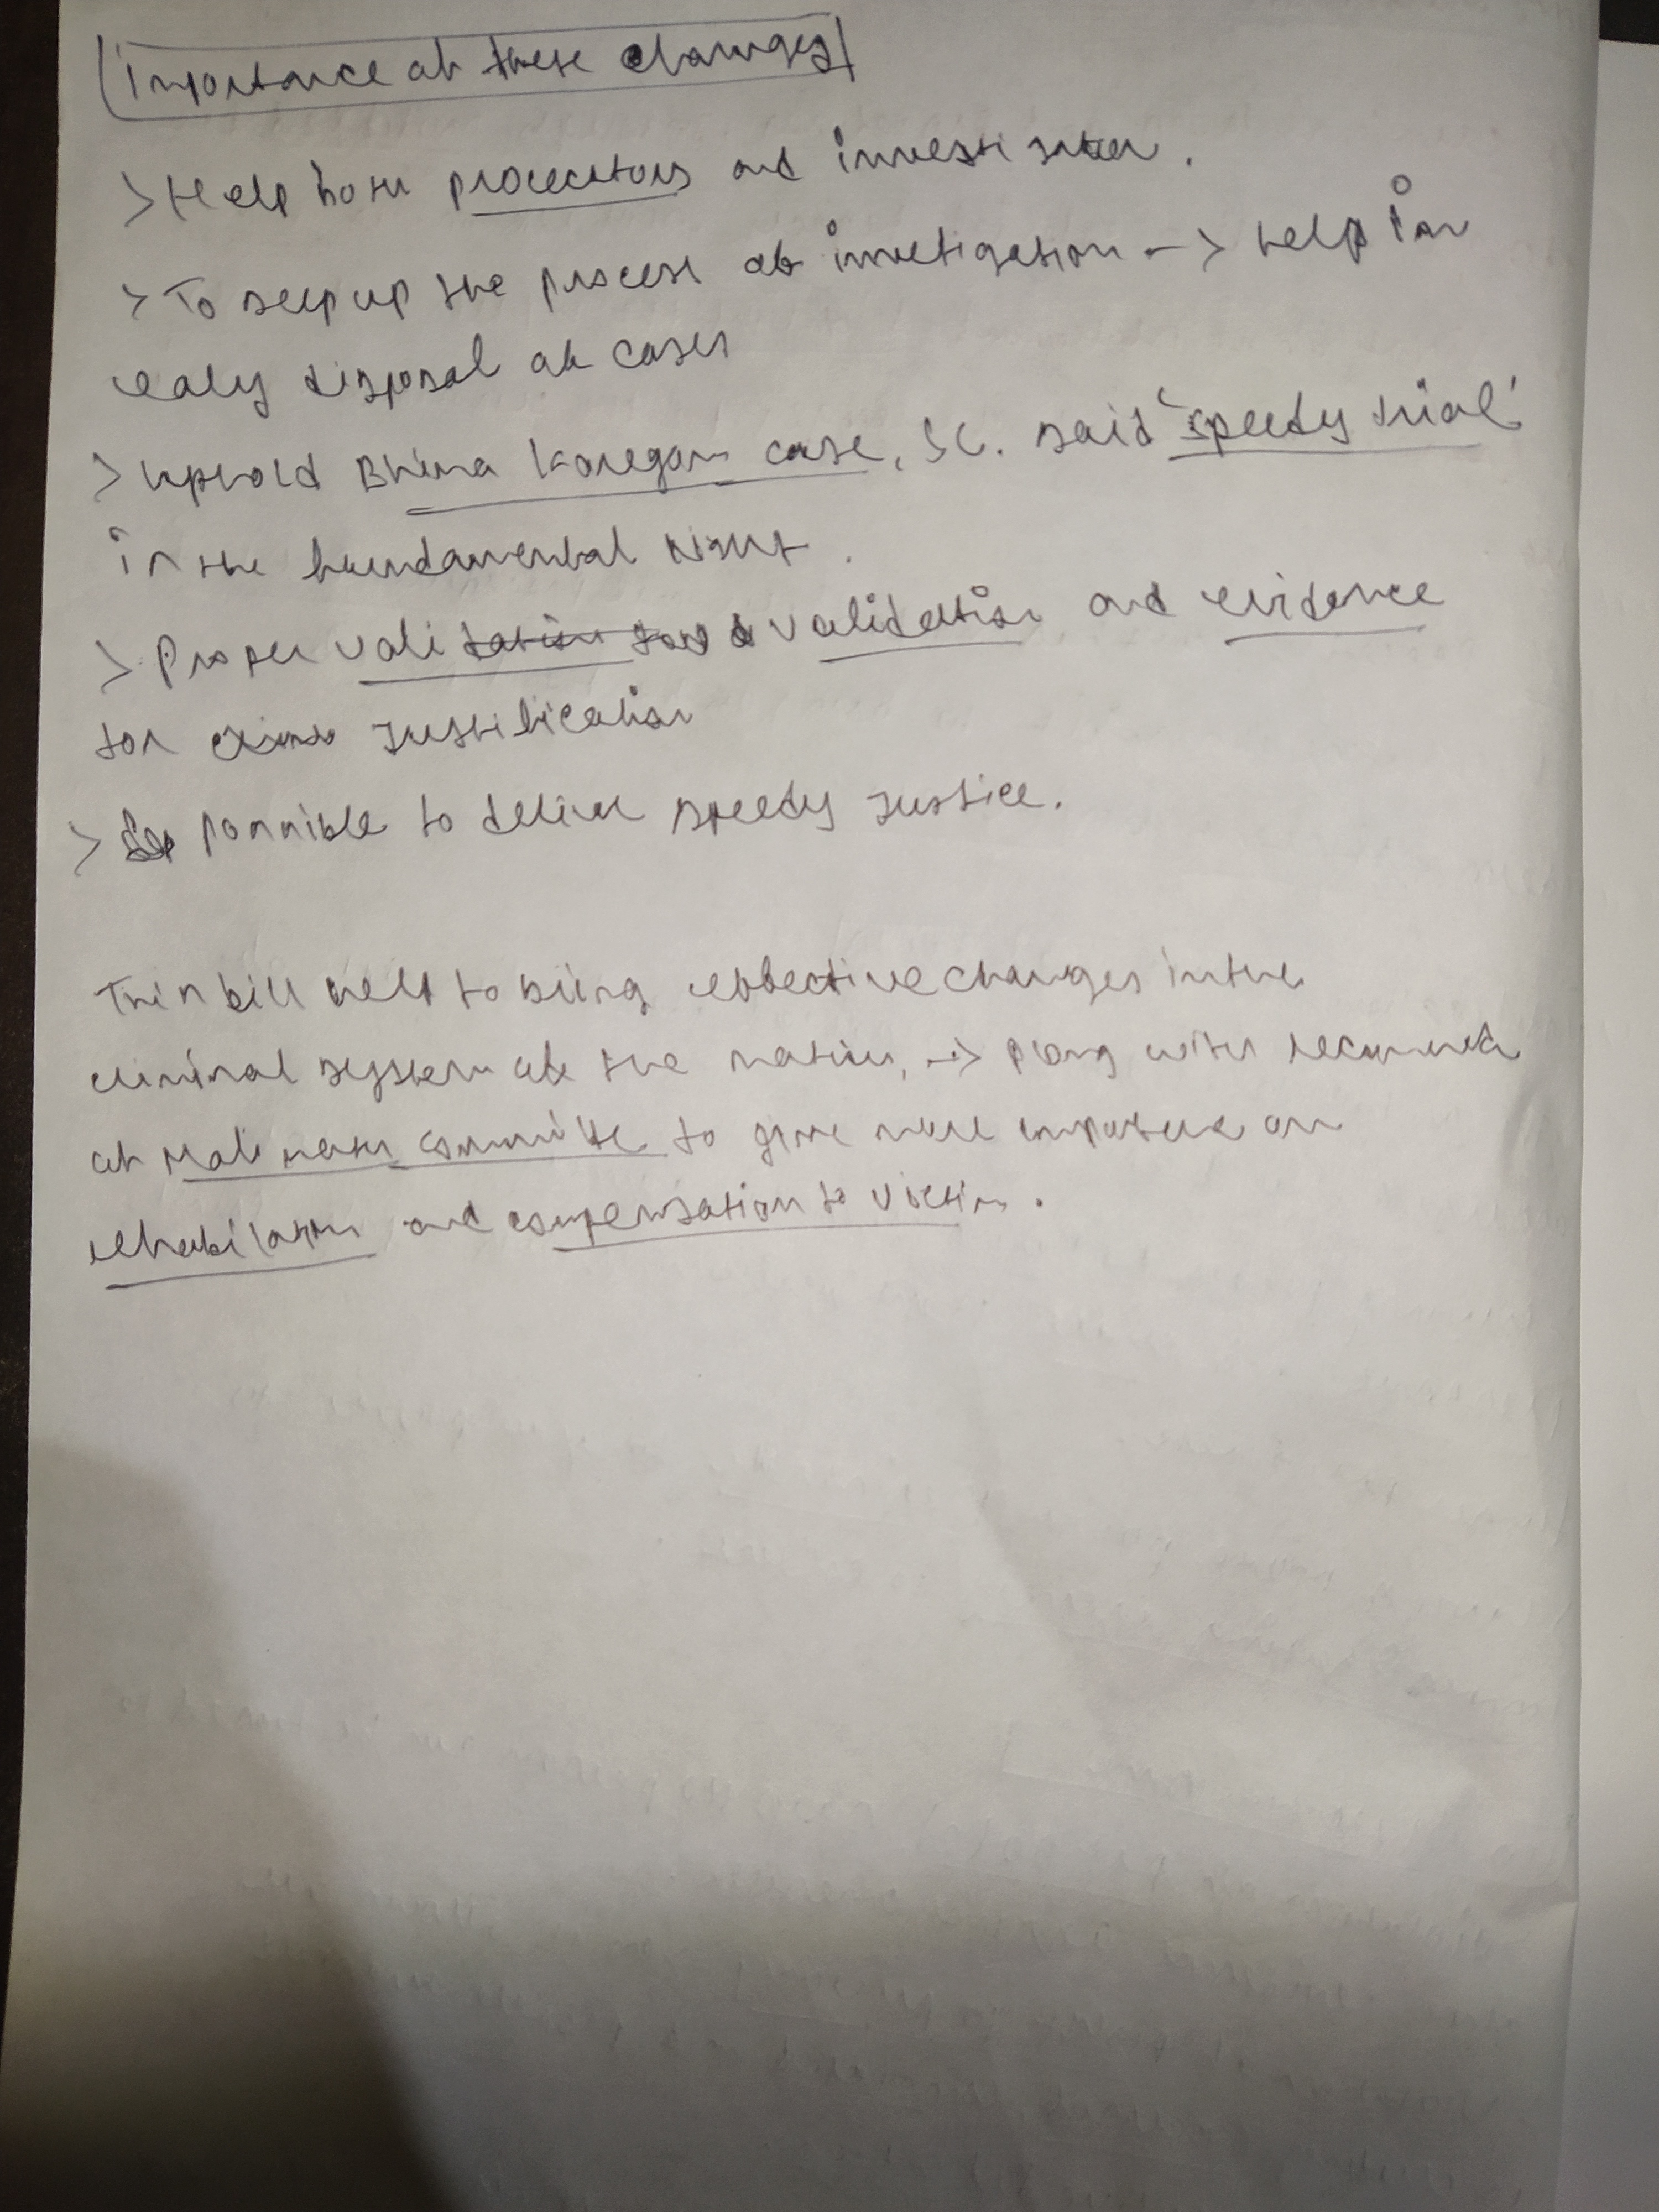 Importance of these changes
> Help both procecutors and investigator.
> To seep up the process of invetigation -> help in
ealy disposal of cases
> uphold Bhima Koregan case, SC. said 'speedy trial'
is the fundamental right.
> Proper validation and evidence
for crime justification
> possible to deliver speedy justice.
This bill help to bring effective changes in the
criminal system of the nation, -> along with
of Malimath committe to give more on
rehabilation and compensation to victim.